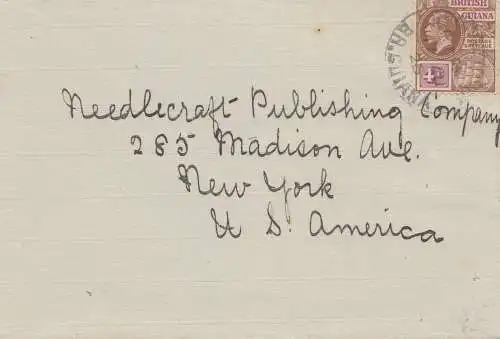 BRITISH
GUIANA
POSTAGE
& REVENUE
4
BR. GUIANA
Needlecraft Publishing Company
285 Madison Ave.
New York
U S. America